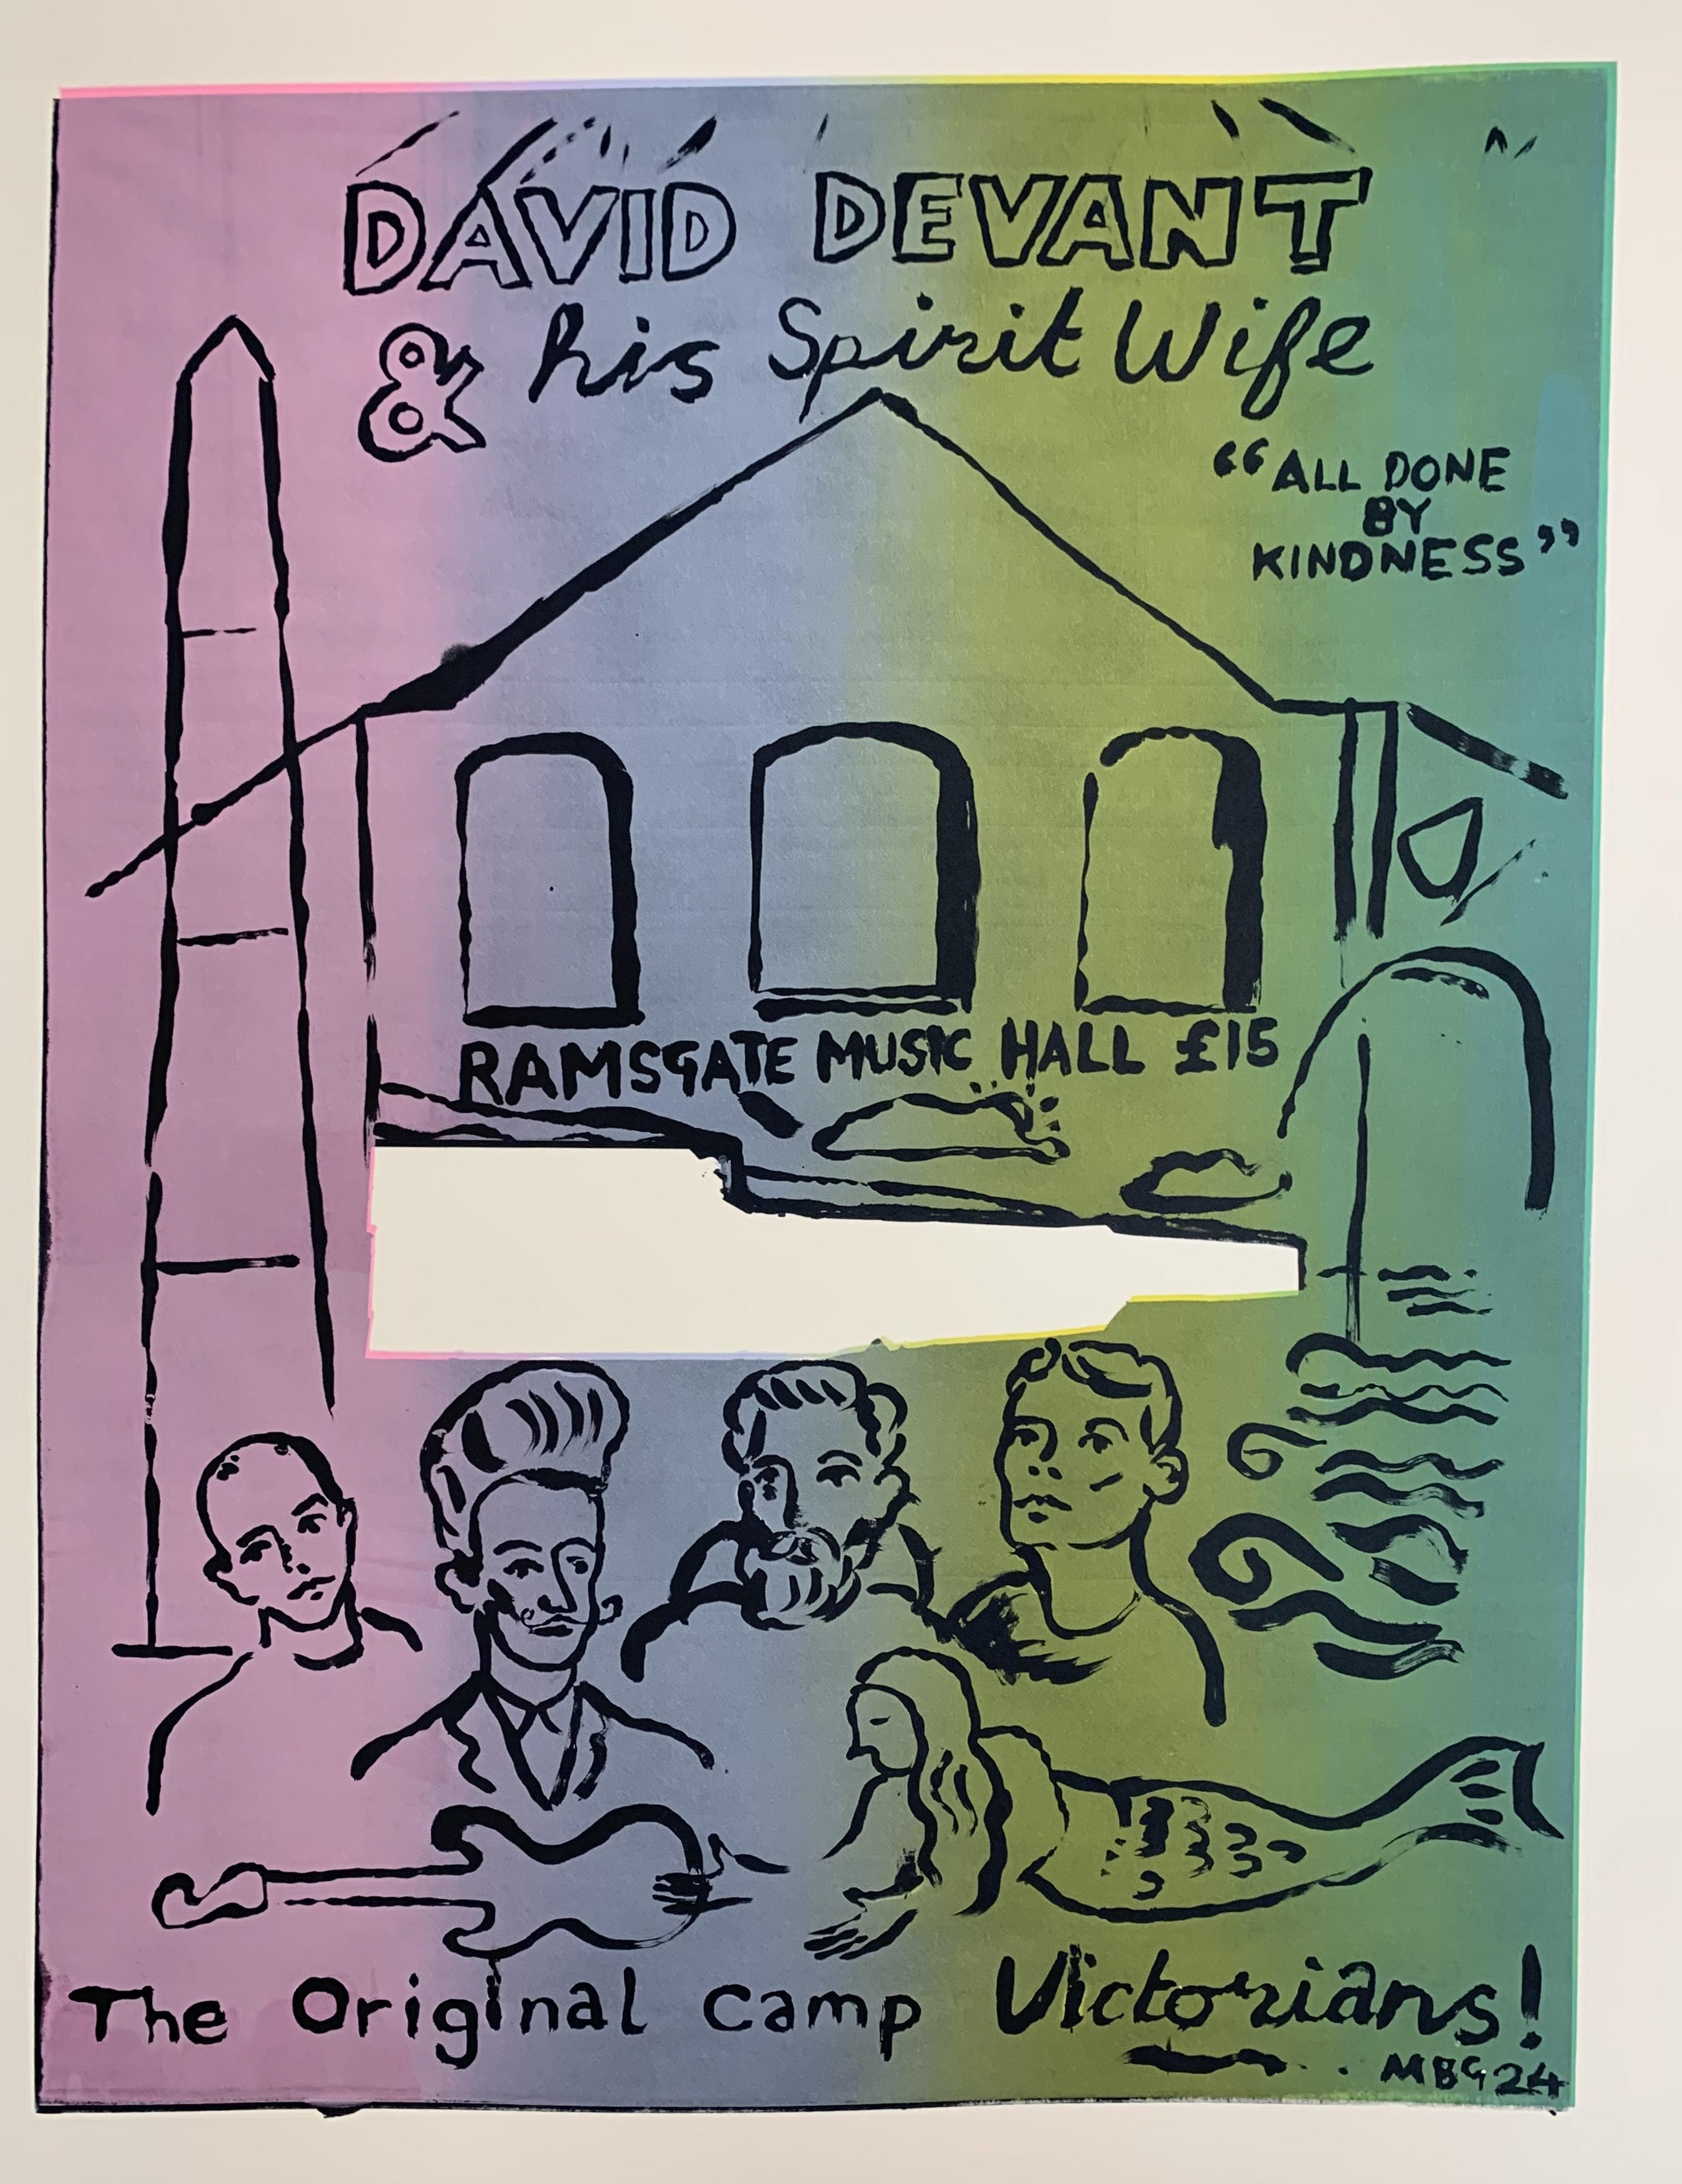 DAVID DEVANT
& his Spirit Wife
“ALL DONE
BY
KINDNESS”
RAMSGATE MUSIC HALL £15
The Original Camp Victorians!
MBG 24